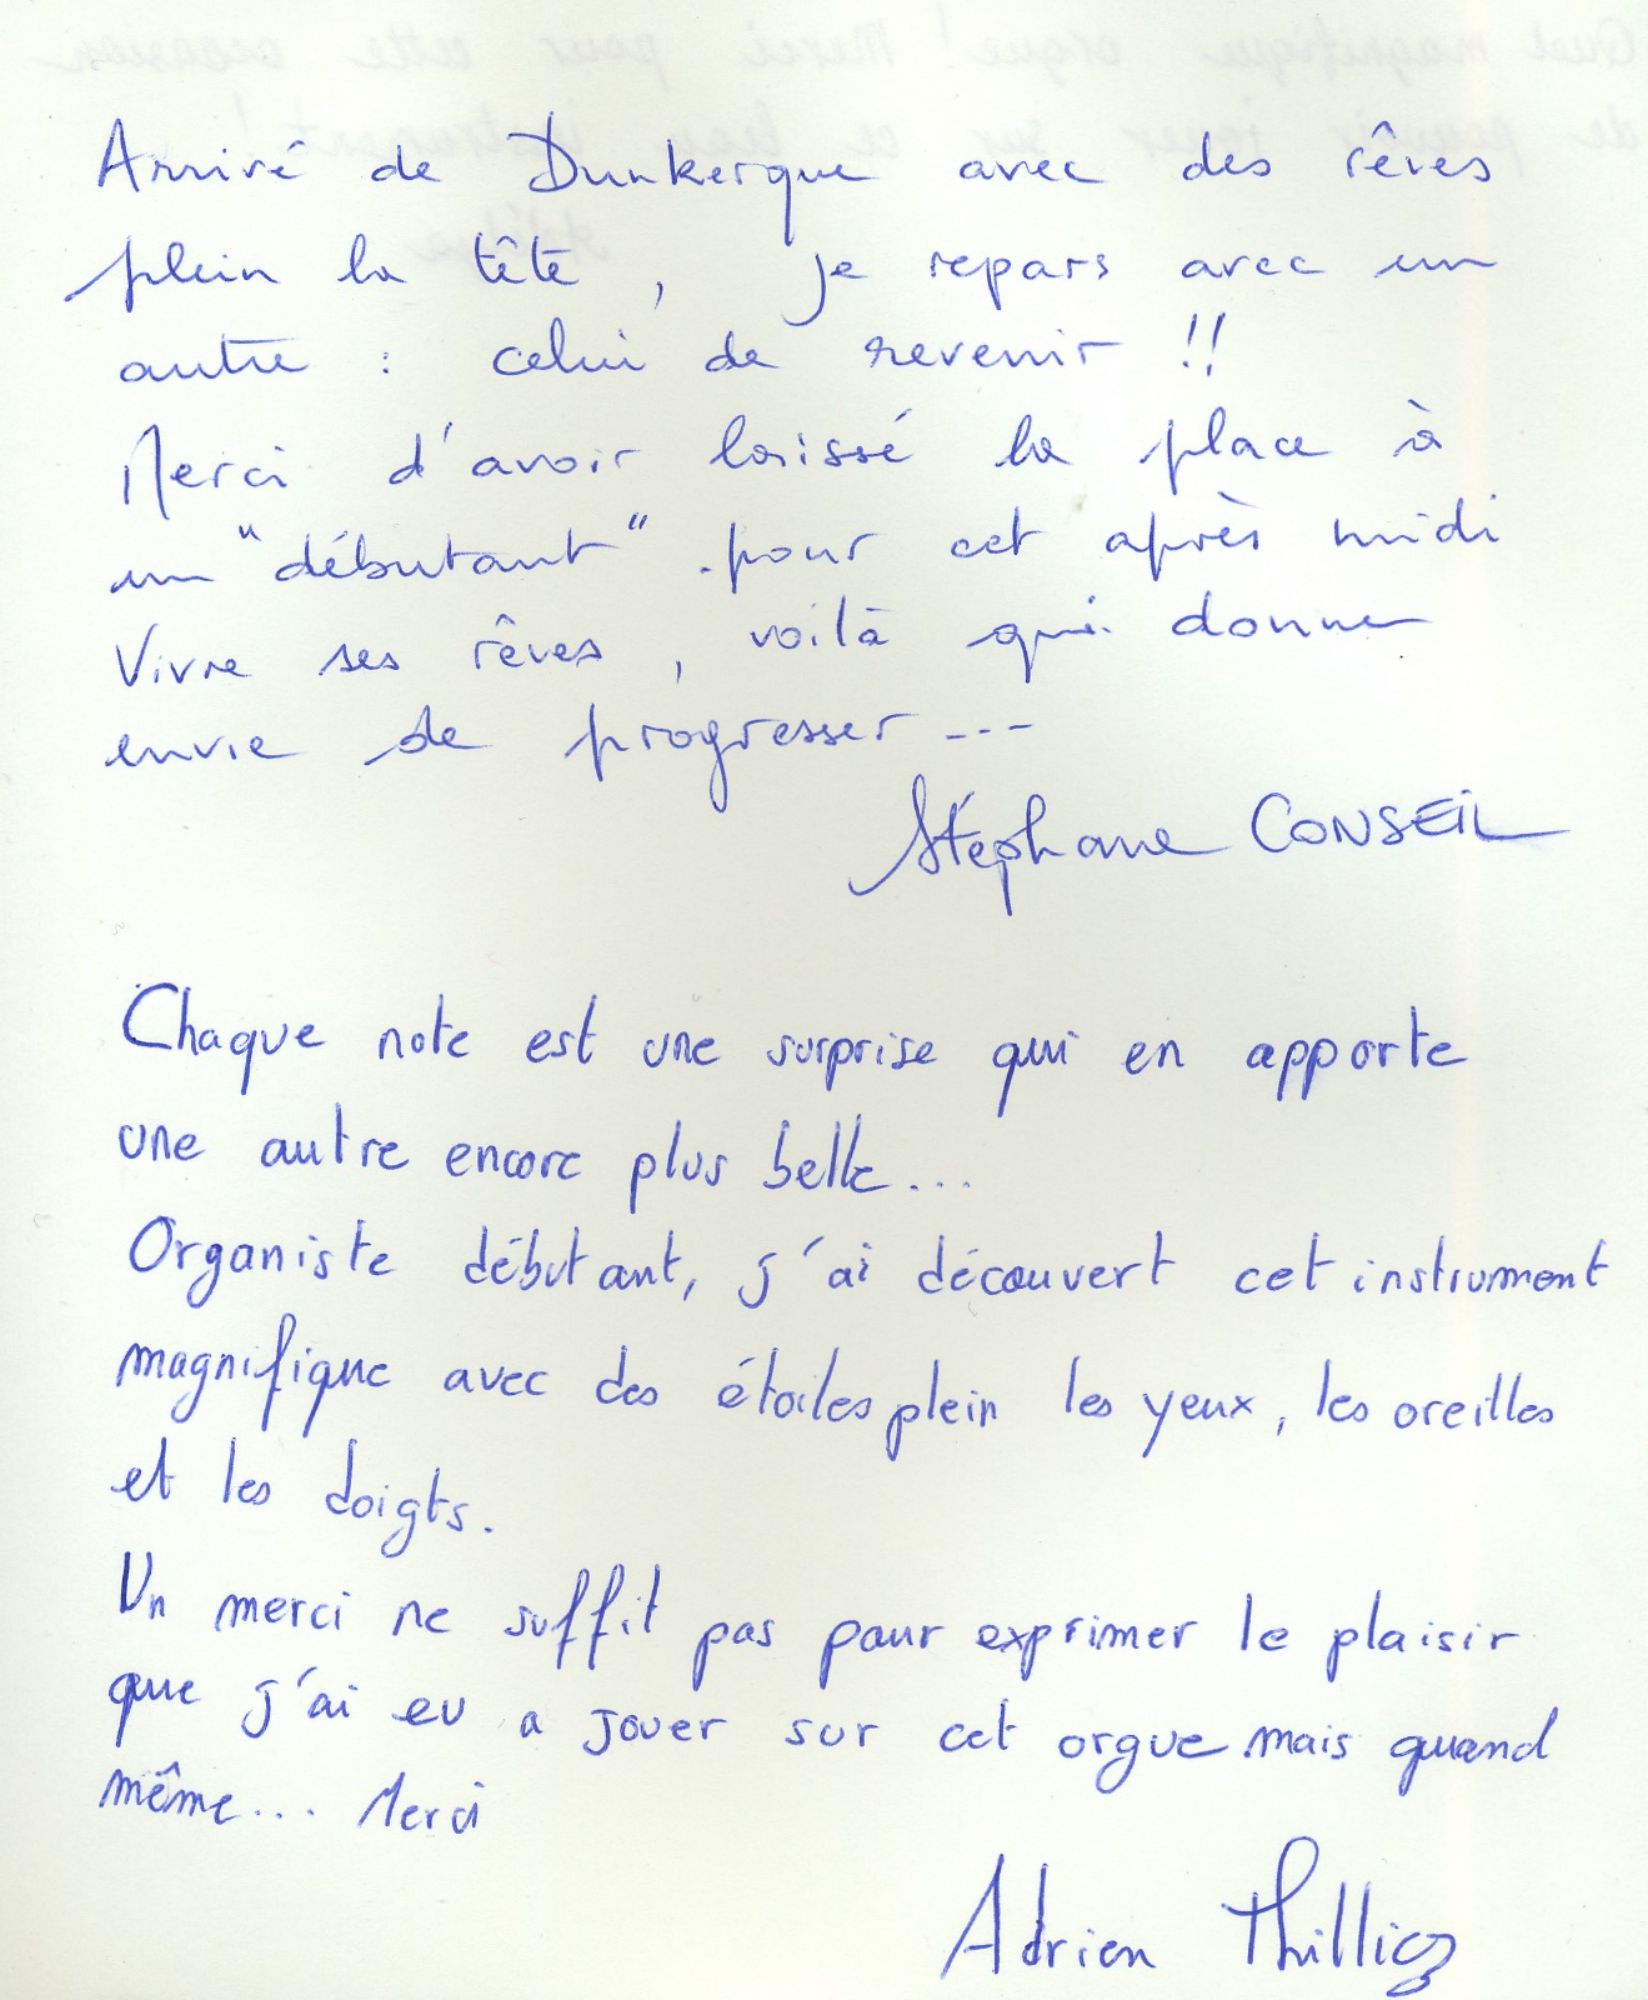 Arrivé de Dunkerque avec des rêves
plein la tête, je repars avec un
autre : celui de revenir !!
Merci d'avoir laissé la place à
un "débutant" pour cet après midi
Vivre ses rêves, voilà qui donne
envie de progresser ---
Stéphane CONSEIL
Chaque note est une surprise qui en apporte
une autre encore plus belle...
Organiste débutant, j'ai découvert cet instrument
magnifique avec des étoiles plein les yeux, les oreilles
et les doigts.
Un merci ne suffit pas pour exprimer le plaisir
que j'ai eu a jouer sur cet orgue mais quand
même... Merci
Adrien